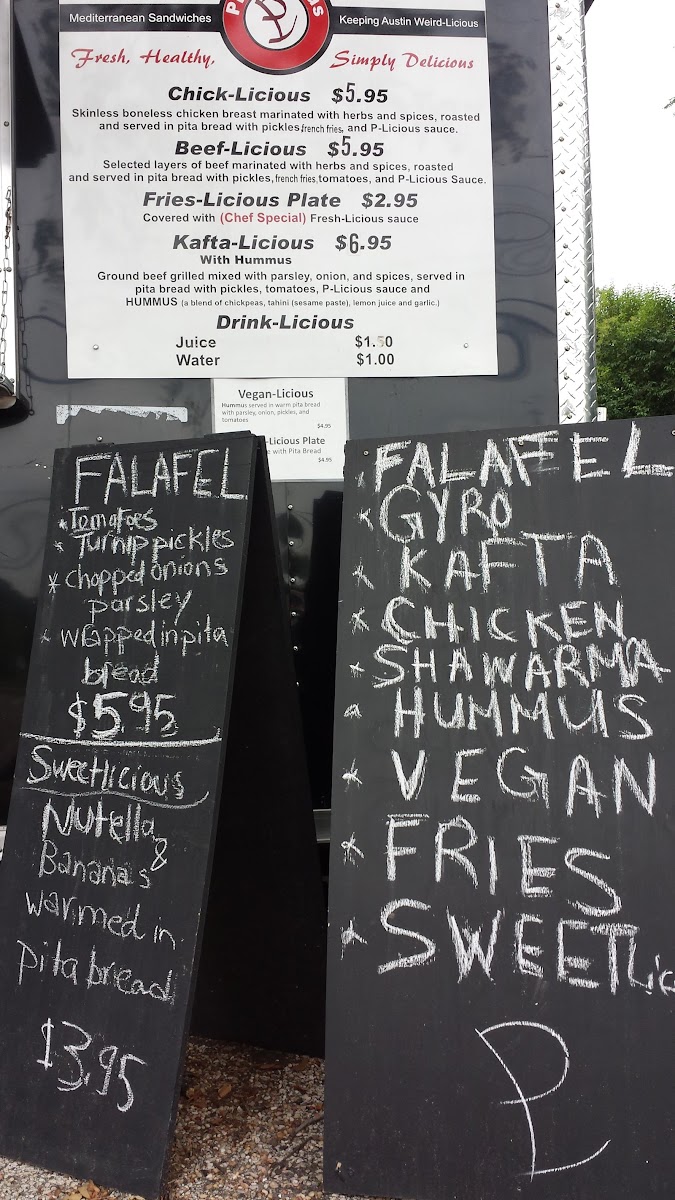 Mediterranean Sandwiches
Keeping Austin Weird-Licious
Fresh, Healthy,
Simply Delicious
Chick-Licious $5.95
Skinless boneless chicken breast marinated with herbs and spices, roasted
and served in pita bread with pickles, french fries, and P-Licious sauce.
Beef-Licious $5.95
Selected layers of beef marinated with herbs and spices, roasted
and served in pita bread with pickles, french fries, tomatoes, and P-Licious Sauce.
Fries-Licious Plate $2.95
Covered with (Chef Special) Fresh-Licious sauce
Kafta-Licious $6.95
With Hummus
Ground beef grilled mixed with parsley, onion, and spices, served in
pita bread with pickles, tomatoes, P-Licious sauce and
HUMMUS (a blend of chickpeas, tahini (sesame paste), lemon juice and garlic.)
Drink-Licious
Juice $1.50
Water $1.00
Vegan-Licious
Hummus served in warm pita bread
with parsley, onion, pickles, and
tomatoes
$4.95
-Licious Plate
with Pita Bread
$4.95
FALAFEL
* Tomatoes
* Turnip pickles
* chopped onions
parsley
* wrapped in pita
bread
$5.95
Sweetlicious
Nutella
&
Bananas
warmed in
pita bread
$3.95
* FALAFEL
* GYRO
* KAFTA
* CHICKEN
* SHAWARMA
* HUMMUS
* VEGAN
* FRIES
* SWEETLic
PL